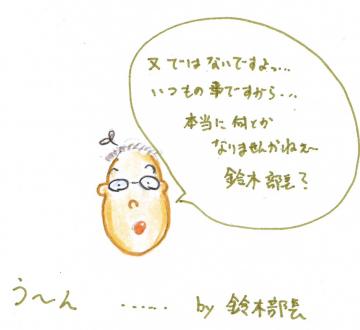 又ではないですよっ…
いつもの事ですから…
本当に何とか
なりませんかねぇ〜
鈴木部長?
う〜ん …… by 鈴木部長